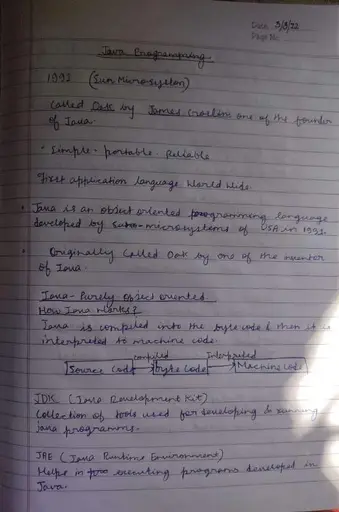 Date 3/3/22
Page No.
Java Programming
1991 (Sun Microsystem)
Called Oak by James Gosling one of the founder
of Java.
• Simple • portable • Reliable
First application language World Wide.
• Java is an object oriented programming language
developed by Sun microsystems of USA in 1991.
• Originally Called Oak by one of the inventor
of Java.
Java - Purely object oriented
How Java Works?
Java is compiled into the byte code & then it is
interpreted to machine code.
compiled Interpreted
Source Code → Byte Code → Machine Code
JDK (Java Development Kit)
Collection of tools used for developing & running
java programms.
JRE (Java Runtime Environment)
Helps in executing programs developed in
Java.